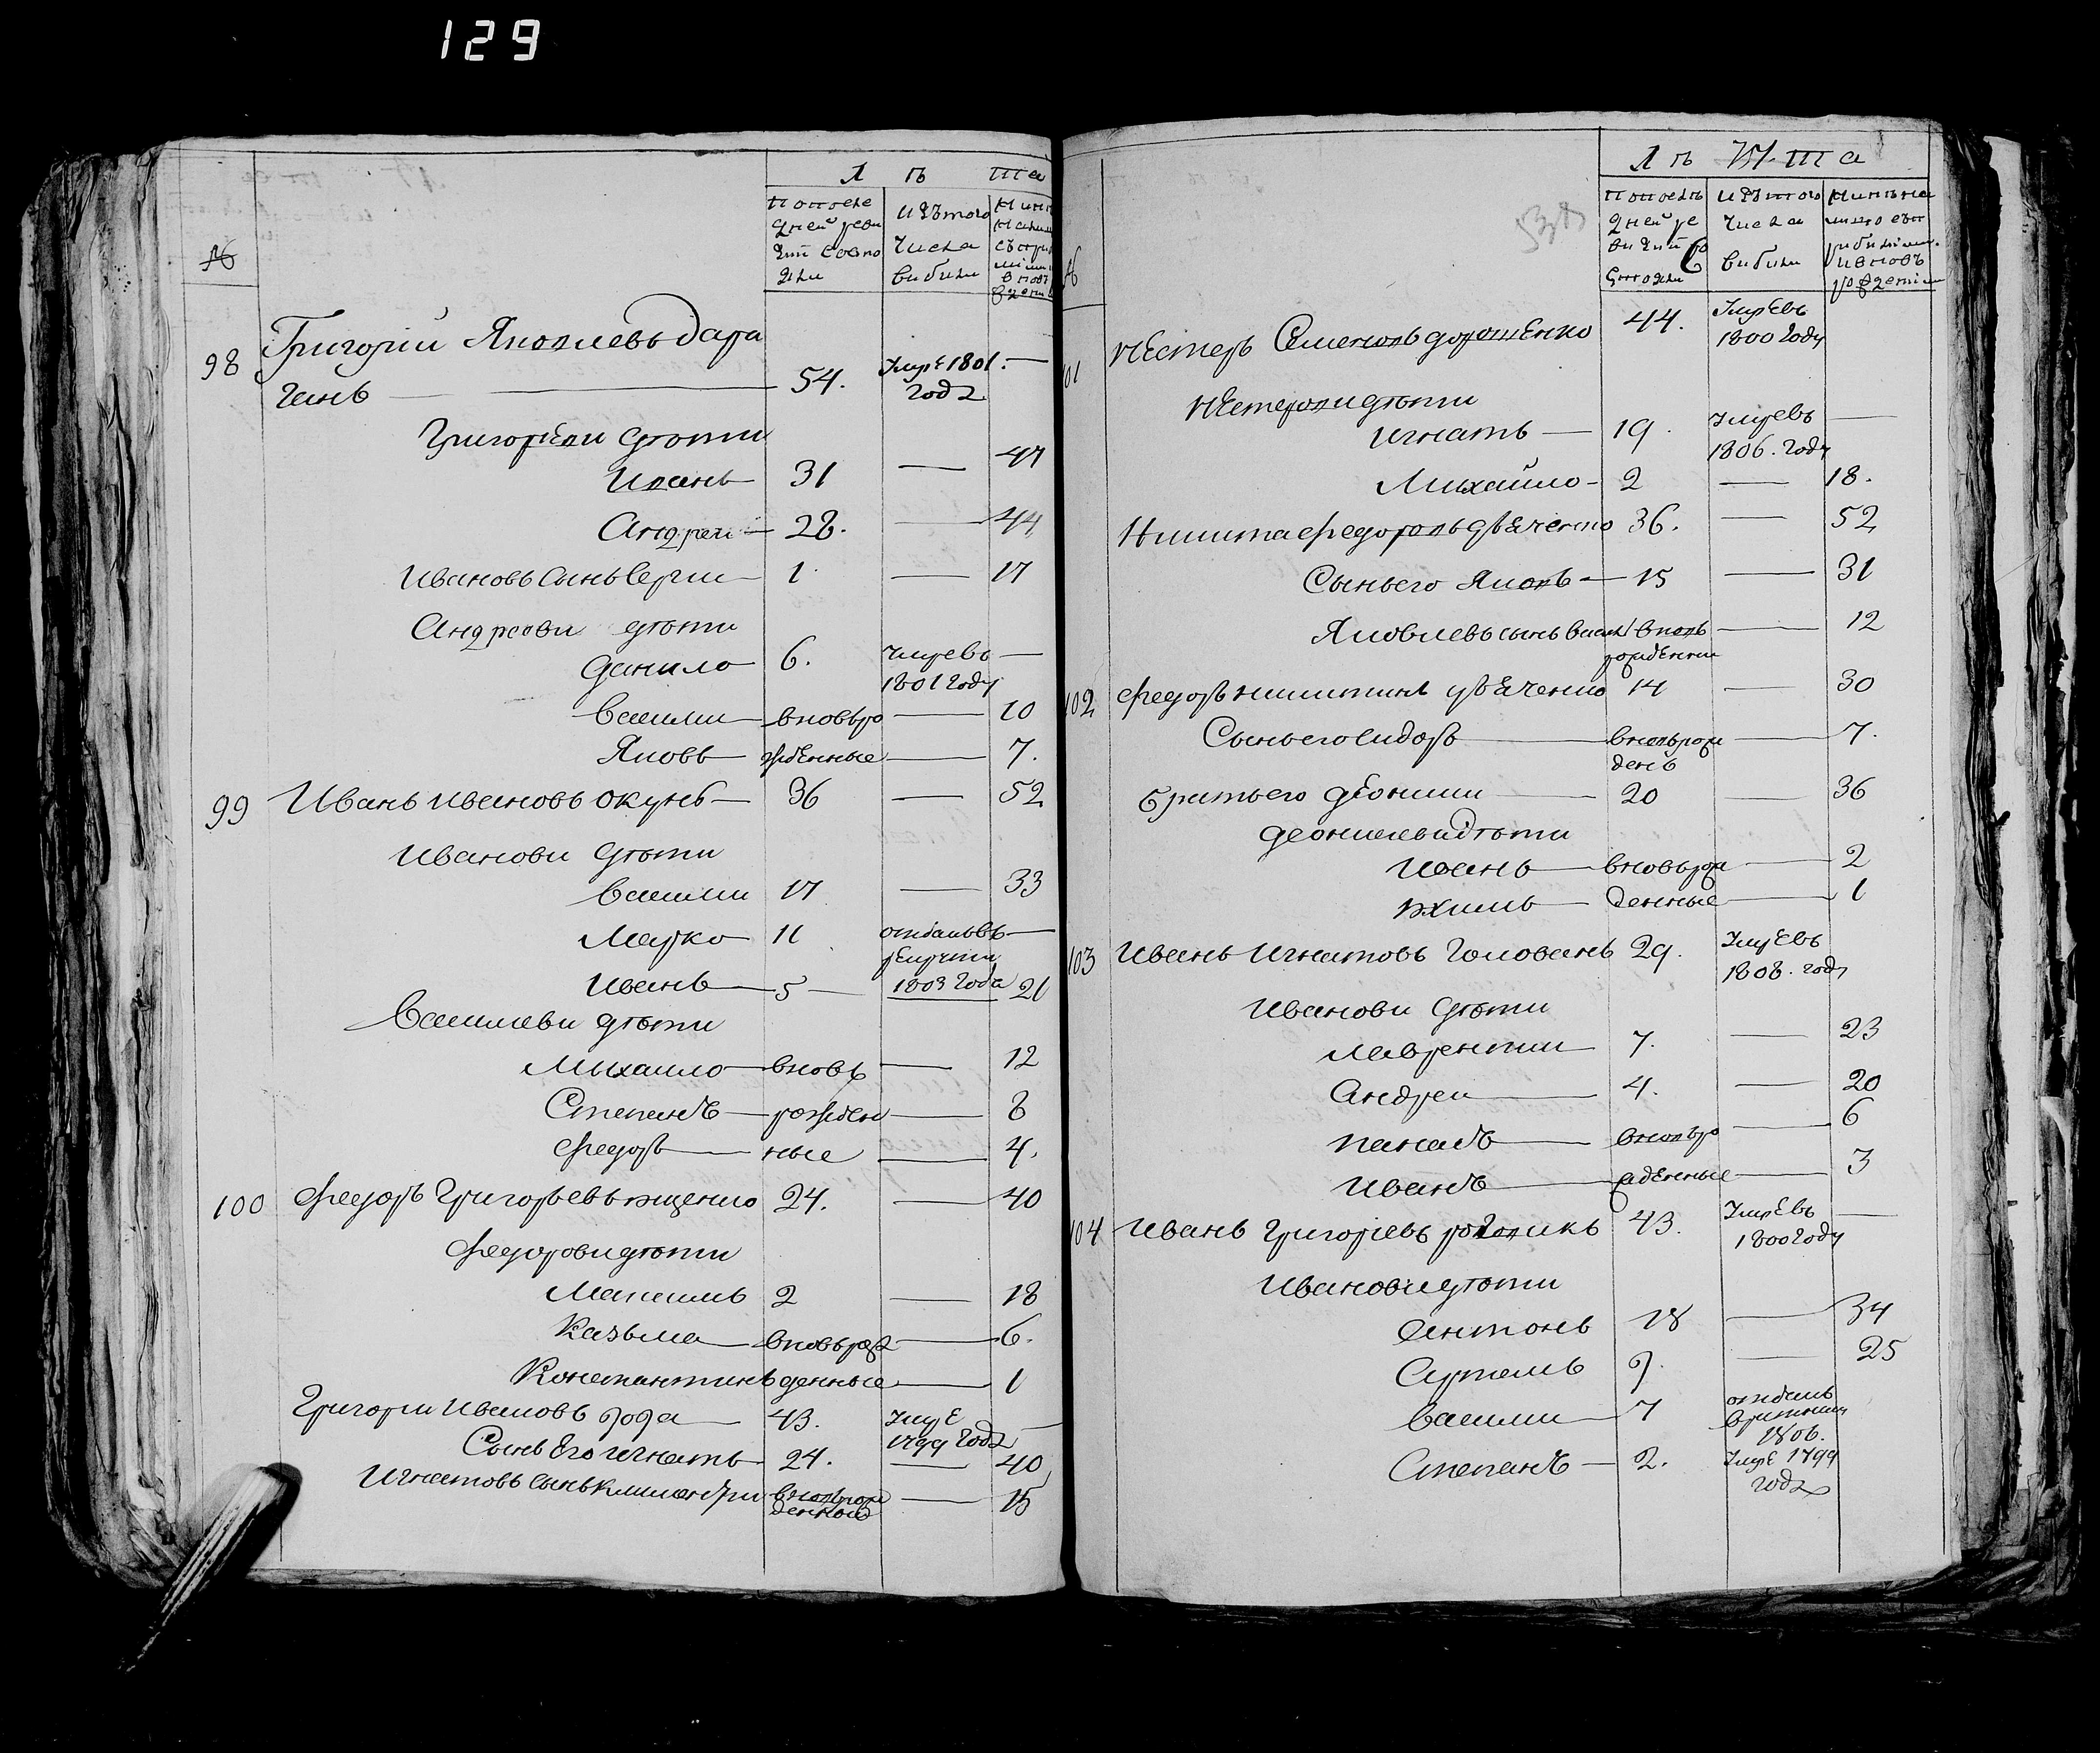 129
Л ѣ та
№
По после
дней реви
зіи состо
яли
Изъ того
числа
выбыли
98 Григорій Яковлевъ Дара
ганъ — 54. Умре 1801. —
год
Григорьеви дѣти
Иванъ — 31 — 47
Андреи — 28. — 44
Ивановъ сынъ Сергии — 1 — 17
Андрееви дѣти
Данило 6. Умре въ —
1801 году
Василии — вновь ро — 10
Яковъ — жденные — 7.
99 Иванъ Ивановъ Окунь — 36 — 52
Иванови дѣти
Василии 17 — 33
Марко — 11 отданъ въ —
рекруты
Иванъ — 5 — 1803 года 21
Василиеви дѣти
Михаило — вновь — 12
Степанъ — рожден — 8
Федоръ — ные — 4.
100 Федоръ Григорьевъ Ющенко 24. — 40
Федорови дѣти
Максимъ 2 — 18
Казьма — вновь рож — 6.
Константинъ денные — 1
Григории Ивановъ — 43. Умре —
1799 год
Сынъ его Игнатъ — 24. — 40
Игнатовъ сынъ вновь рож — 15
денной
Лѣта
№
По последъ
дней ре
визіи со
стояли
Изъ того
числа
выбыли
101 Нестеръ Семеновъ Дорошенко 44. Умре въ
1800 году
Нестерови дѣти
Игнатъ — 19. Умре въ —
1806. году
Михайло — 2 — 18.
Никита Федоровъ Дяченко 36. — 52
Сынъ его Яковъ — 15 — 31
Яковлевъ сынъ Васил вновь — 12
рожденни
102 Федоръ Никитинъ Дяченко 14 — 30
Сынъ его Сидоръ — вновь рож — 7.
денъ
Братъ его Деонисии — 20 — 36
Деонисиеви дѣти
Иванъ — вновь рож — 2
Якимъ — денные — 1
103 Иванъ Игнатовъ Голованъ 29. Умре въ
1808. году
Иванови дѣти
Лаврентии — 7. — 23
Андреи — 4. — 20
Панасъ — вновь ро — 6
Иванъ — жденные — 3
104 Иванъ Григорьевъ 43. Умре въ —
1800 году
Иванови дѣти
Антонъ 18 — 34
Артемъ 9. — 25
Василии — 7 отданъ
1806.
Степанъ — 2. Умре 1799
год